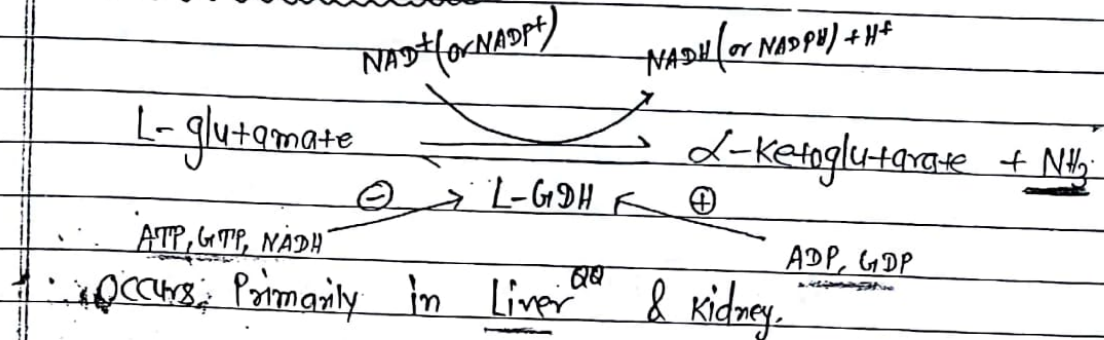 NAD+ (or NADP+) NADH (or NADPH) + H+
L-glutamate α-Ketoglutarate + NH3
⊖ L-GDH ⊕
ATP, GTP, NADH ADP, GDP
Occurs Primarily in Liver QQ & Kidney.